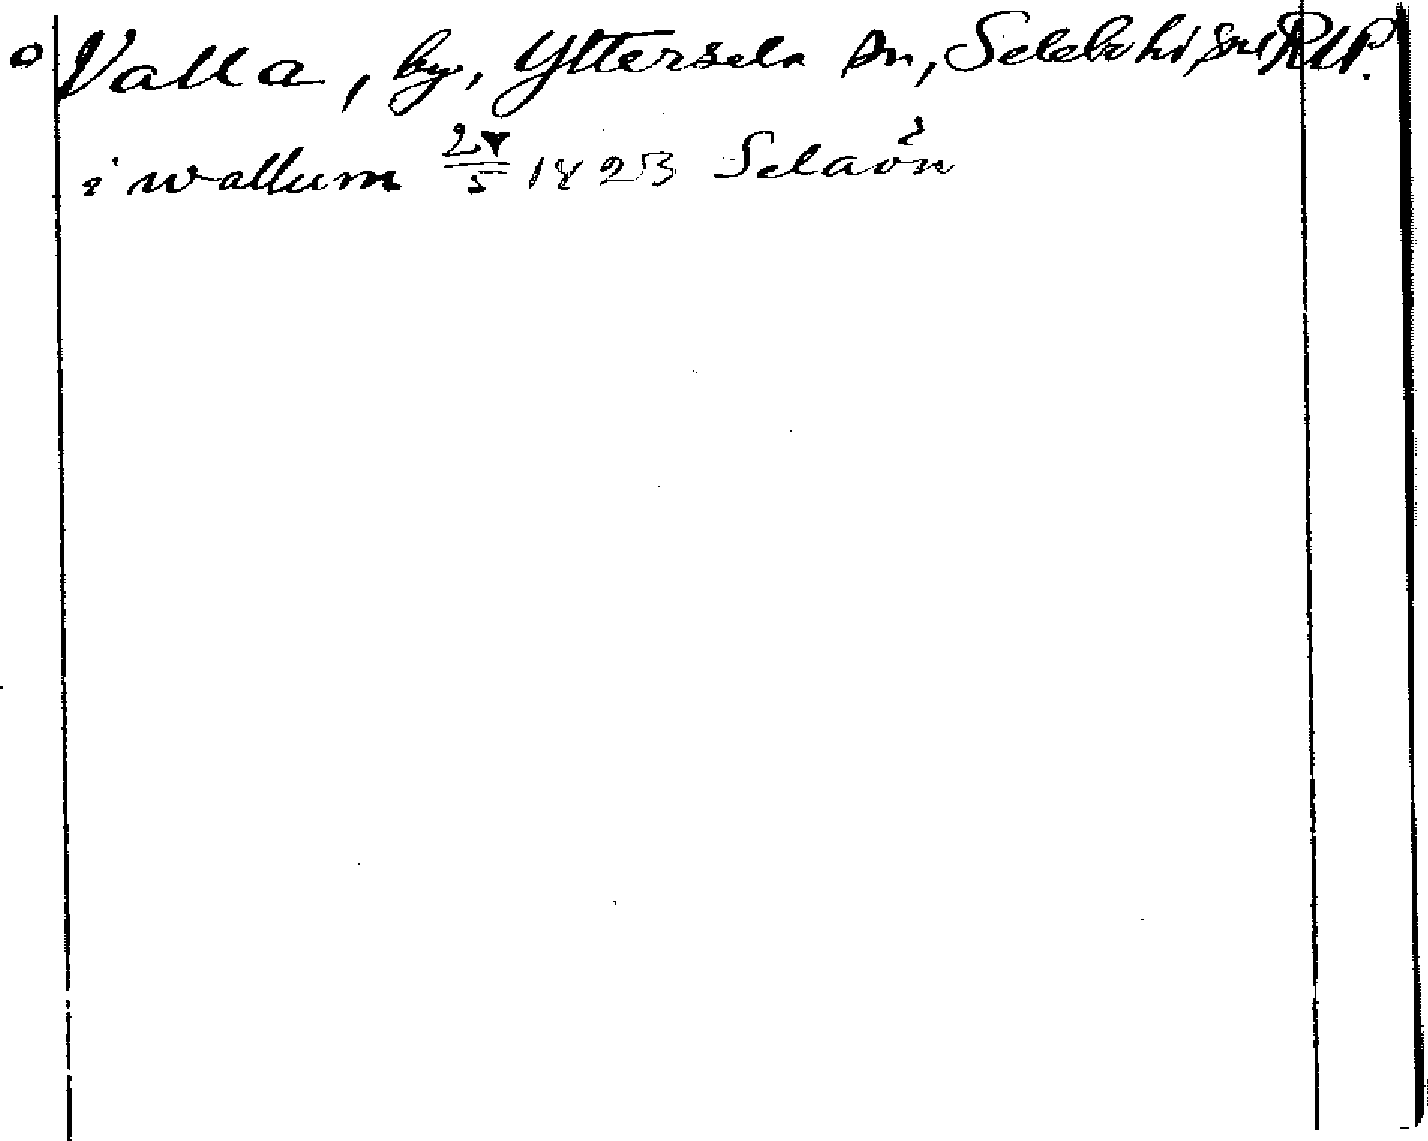 o Valla, by, Yttersela sn, Selebo hd, Srml RAP.
i wallum 27/5 1423 Selaön